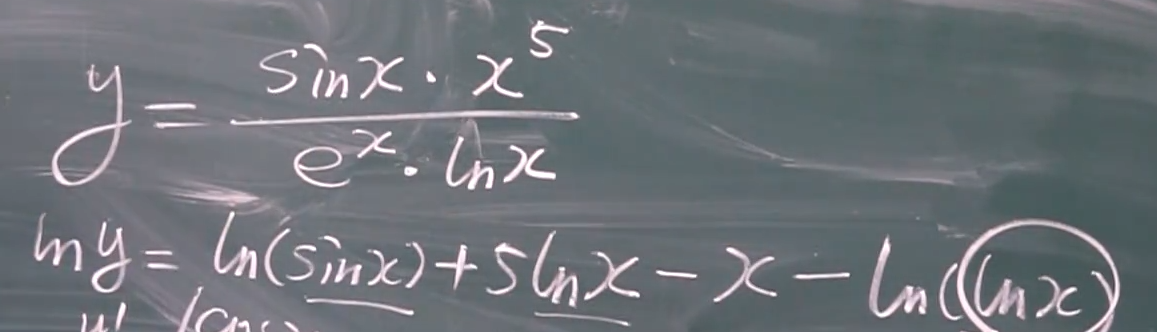 y = \frac{sinx · x^5}{e^x · lnx}
lny = ln(sinx) + 5lnx - x - ln(lnx)